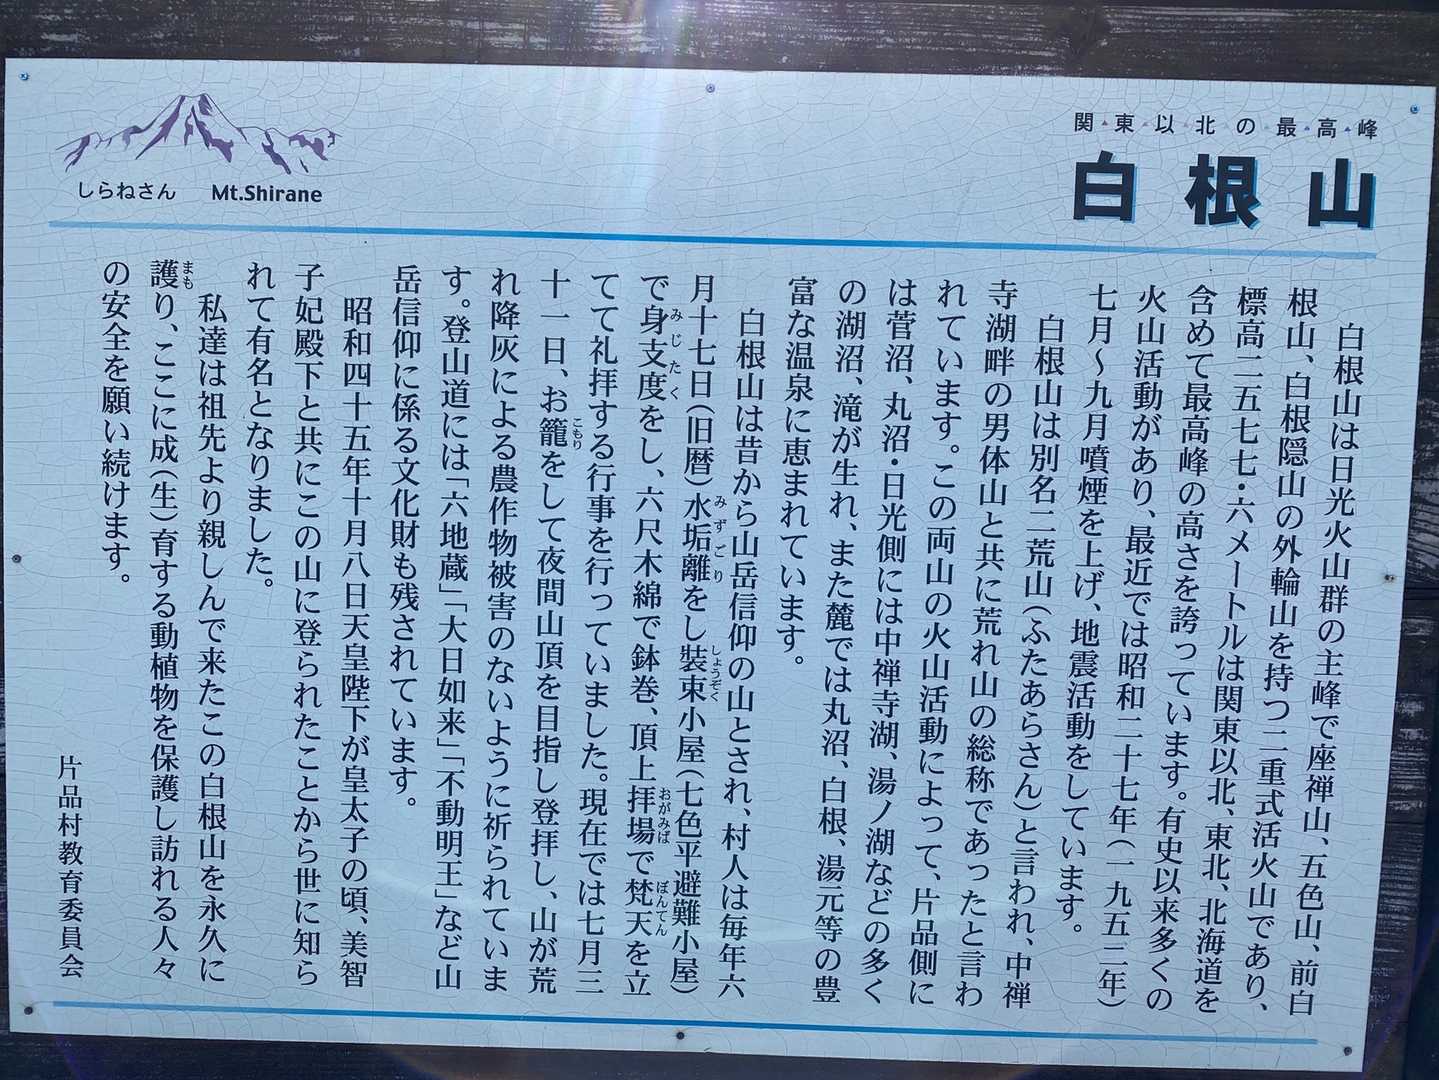 関東以北の最高峰
白根山
しらねさん Mt.Shirane
白根山は日光火山群の主峰で座禅山、五色山、前白
根山、白根隠山の外輪山を持つ二重式活火山であり、
標高二五七七・六メートルは関東以北、東北、北海道を
含めて最高峰の高さを誇っています。有史以来多くの
火山活動があり、最近では昭和二十七年(一九五二年)
七月~九月噴煙を上げ、地震活動をしています。
白根山は別名二荒山(ふたあらさん)と言われ、中禅
寺湖畔の男体山と共に荒れ山の総称であったと言わ
れています。この両山の火山活動によって、片品側に
は菅沼、丸沼・日光側には中禅寺湖、湯ノ湖などの多く
の湖沼、滝が生れ、また麓では丸沼、白根、湯元等の豊
富な温泉に恵まれています。
白根山は昔から山岳信仰の山とされ、村人は毎年六
月十七日(旧暦)水垢離をし装束小屋(七色平避難小屋)
みずごり しょうぞく
で身支度をし、六尺木綿で鉢巻、頂上拝場で梵天を立
みじたく おがみば ぼんてん
てて礼拝する行事を行っていました。現在では七月三
十一日、お籠をして夜間山頂を目指し登拝し、山が荒
こもり
れ降灰による農作物被害のないように祈られていま
す。登山道には「六地蔵」「大日如来」「不動明王」など山
岳信仰に係る文化財も残されています。
昭和四十五年十月八日天皇陛下が皇太子の頃、美智
子妃殿下と共にこの山に登られたことから世に知ら
れて有名となりました。
私達は祖先より親しんで来たこの白根山を永久に
護り、ここに成(生)育する動植物を保護し訪れる人々
まも
の安全を願い続けます。
片品村教育委員会